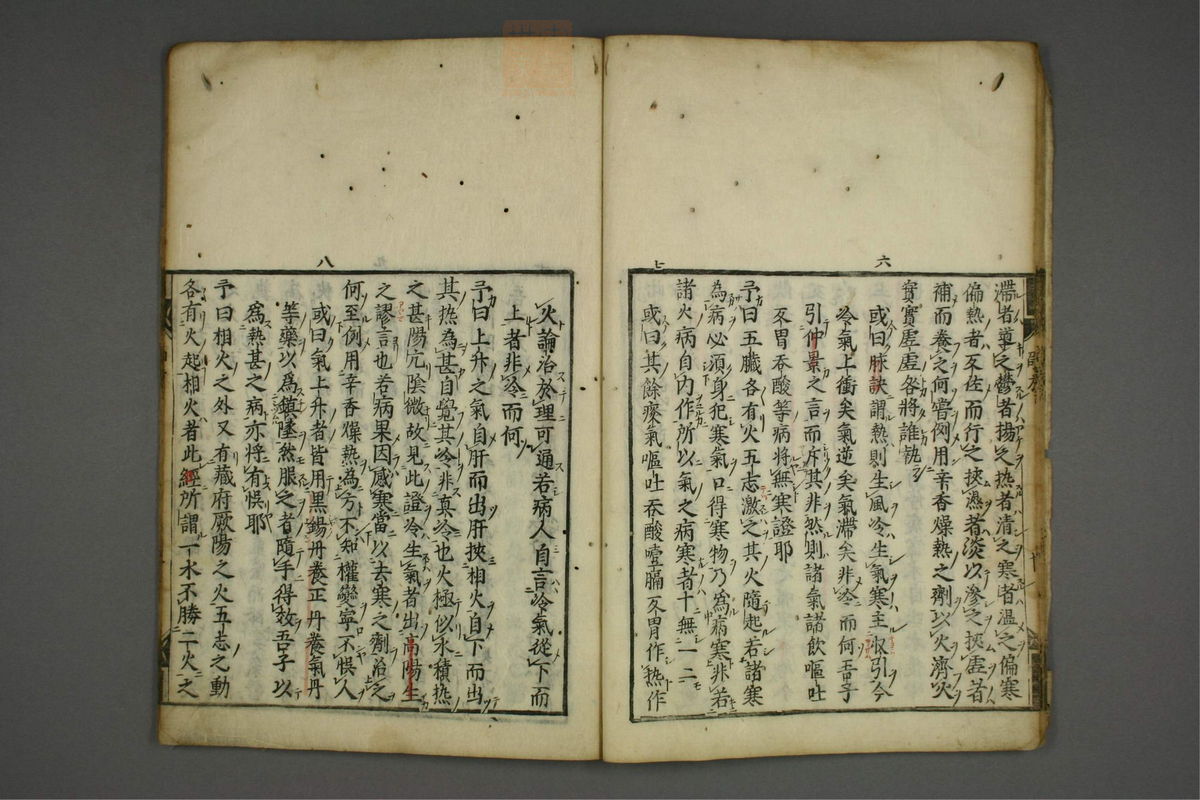 六
滯者導之鬱者揚之热者清之寒者温之偏寒
偏热者反佐而行之挾濕者淡以滲之挾虚者
補而養之何嘗例用辛香燥熱之劑以火濟火
實實虚虚咎將誰執
或曰脉訣謂熱則生風冷生氣寒主收引今
冷氣上衝矣氣逆矣氣滯矣非冷而何吾子
引仲景之言而斥其非然則諸氣諸飲嘔吐
反胃吞酸等病將無寒證耶
七
予曰五臓各有火五志激之其火隨起若諸寒
為病必須身犯寒氣口得寒物乃為病寒非若
諸火病自内作所以氣之病寒者十無一二
或曰其餘痰氣嘔吐吞酸噎膈反胃作热作
火論治於理可通若病人自言冷氣從下而
上者非冷而何
八
予曰上升之氣自肝而出肝挾相火自下而出
其热為甚自覺其冷非真冷也火極似水積热
之甚陽亢陰微故見此證冷生氣者出高陽生
之謬言也若病果因感寒當以去寒之劑治之
何至例用辛香燥熱為方不知權變寧不悮人
或曰氣上升者皆用黒錫丹養正丹養氣丹
等藥以為鎮墜然服之者隨手得效吾子以
為熱甚之病亦將有悮耶
予曰相火之外又有藏府厥陽之火五志之動
各有火起相火者此經所謂一水不勝二火之